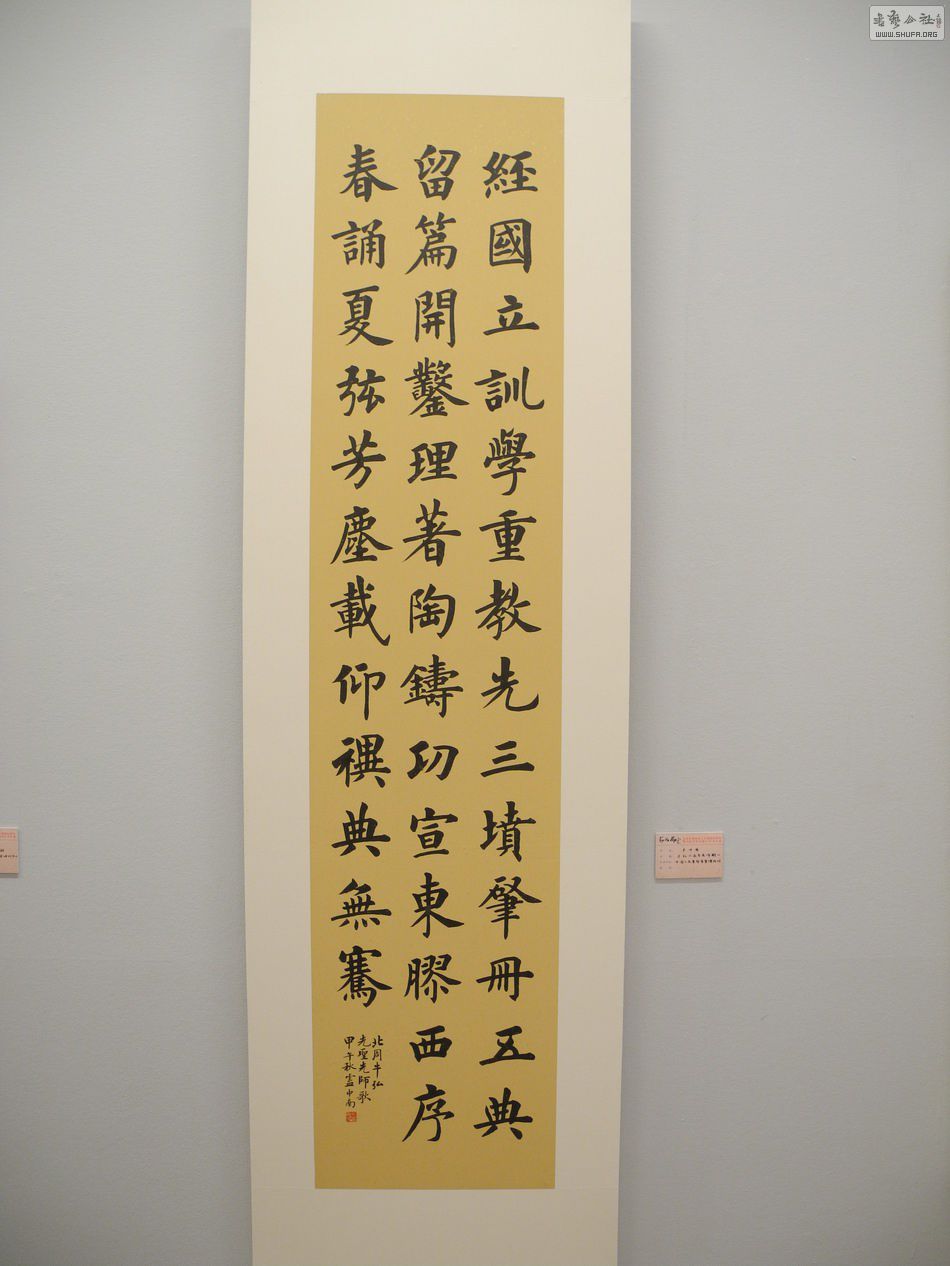 經國立訓學重教先三墳肇冊五典
留篇開鑿理著陶鑄功宣東膠西序
春誦夏弦芳塵載仰禩典無騫
北周牛弘
先聖先師歌
甲午秋盧中南
書藝公社
WWW.SHUFA.ORG